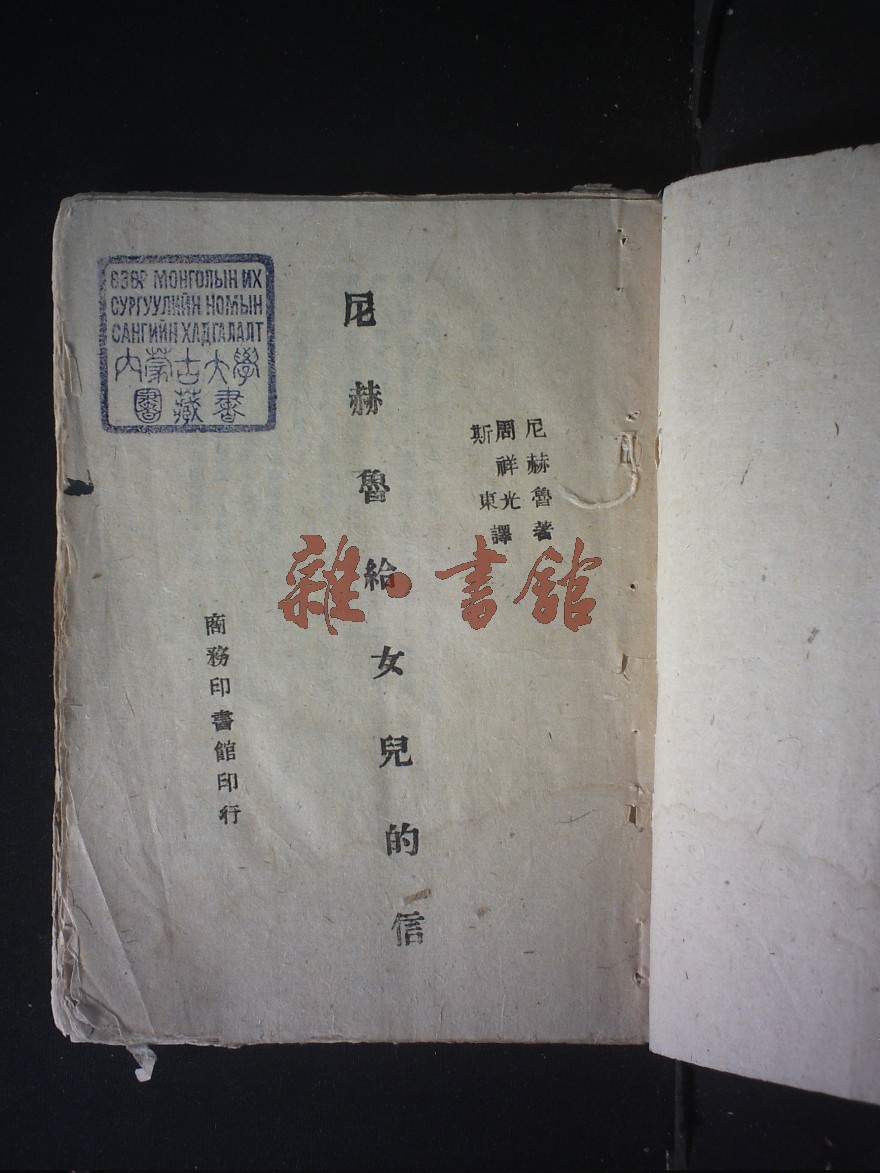 尼赫魯著
周祥光
斯東
譯
尼赫魯給女兒的信
商務印書館印行
ӨВӨР МОНГОЛЫН ИХ
СУРГУУЛИЙН НОМЫН
САНГИЙН ХАДГАЛАЛТ
内蒙古大學
圕藏書
雜·書館